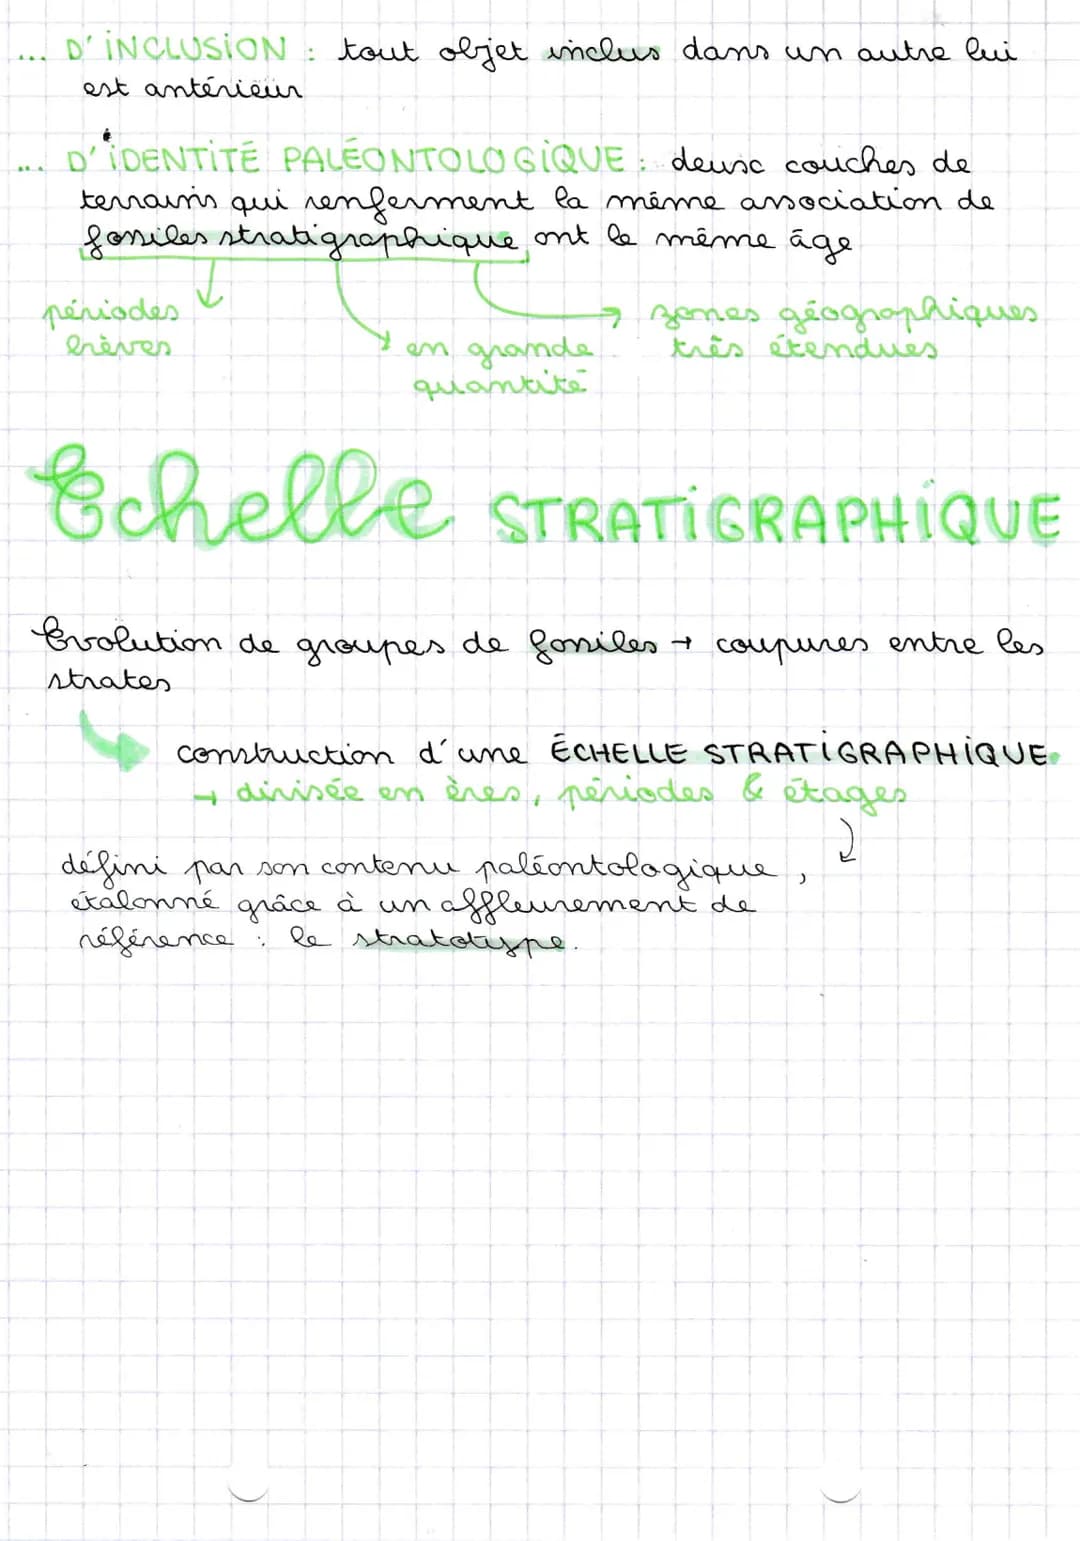 ... D'INCLUSION : tout objet inclus dans un autre lui
est antérieur
... D'IDENTITÉ PALÉONTOLOGIQUE : deux couches de
terrains qui renferment la même association de
fossiles stratigraphique ont le même âge
périodes
brèves
en grande
quantité
zones géographiques
très étendues
Echelle STRATIGRAPHIQUE
Evolution de groupes de fossiles → coupures entre les
strates
construction d'une ÉCHELLE STRATIGRAPHIQUE
→ divisée en ères, périodes & étages
défini par son contenu paléontologique,
étalonné grâce à un affleurement de
référence : le stratotype.